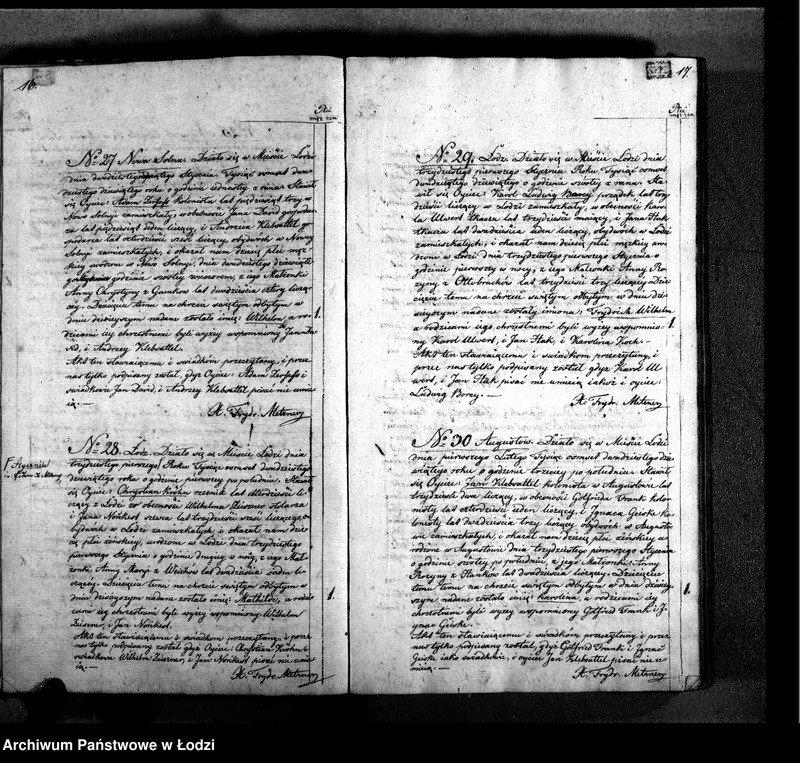 16.
Płci
męz żeń
No 27 Nowa Solna. Działo się w Mieście Łodzi
dnia dwudziestego Stycznia Tysiąc osmset dwu-
dziestego dziewiątego roku o godzinie iedenastey z rana. Stawił
się Oyciec: Adam kolonista lat pięćdziesiąt trzy w
Nowo Solnej zamieszkały, w obecności Jana David gospoda-
rza lat pięćdziesiąt ieden liczący, i Andrzeia Klebsattel go-
spodarza lat czterdzieści sześć liczący, obydwóch w Nowey
Solnej zamieszkałych, i okazał nam dziecię płci męz-
kiej urodzone w Nowo Solnej, dnia dwudziestego dziewiąte-
go o godzinie szóstey wieczorem, z iego Małżonki
Anny Chrystyny z lat dwadzieścia cztery liczą-
cey. Dziecięciu temu na chrzcie świętym odbytym w
dniu dzisieyszym nadane zostało imię: Wilhelm, a ro-
dzicami iego chrzestnemi byli wyżey wspomniony Jan Da-
vid, i Andrzey Klebsattel.
Akt ten stawaiącemu i świadkom przeczytany, i przez
nas tylko podpisany został, gdyż Oyciec: Adam i
świadkowie Jan David, i Andrzey Klebsattel pisać nie umie-
ią.
X. Frydr. Metzner
1.
No 28. Łódź. Działo się w Mieście Łodzi dnia
trzydziestego pierwszego Roku Tysiąc osmset dwudziestego
dziewiątego roku o godzinie pierwszey po południu. Stawił
się Oyciec: Chrystian Krohn rzeźnik lat czterdzieści li-
czący z Łodzi w obecności Wilhelma stolarza
i Jana Nonkest szewca lat trzydzieści sześć liczącego
obydwóch w Łodzi zamieszkałych, i okazał nam dzie-
cię płci żeńskiey, urodzone w Łodzi dnia trzydziestego
pierwszego Stycznia o godzinie drugiey w nocy, z iego Mał-
żonki Anny Maryi z lat dwadzieścia siedm li-
czącey. Dziecięciu temu na chrzcie świętym odbytym w
dniu dzisieyszym nadane zostało imię: Mathilde, a rodzi-
cami iey chrzestnemi byli wyżey wspomniony Wilhelm
i Jan Nonkest.
Akt ten stawaiącemu i świadkom przeczytany, i przez
nas tylko podpisany został, gdyż Oyciec: Chrystian Krohn i
świadkowie Wilhelm i Jan Nonkest pisać nie umie-
ią.
X. Frydr. Metzner
1.
17.
Płci
męz żeń
No 29. Łódź. Działo się w Mieście Łodzi dnia
trzydziestego pierwszego Stycznia Roku Tysiąc osmset
dwudziestego dziewiątego o godzinie szóstey z rana. Sta-
wił się Oyciec: Karol Ludwig Borey lat trzy-
dzieści liczący, w Łodzi zamieszkały, w obecności Karo-
la Ulwert tkacza lat trzydzieści maiący, i Jana Htak
tkacza lat dwadzieścia ieden liczący, obydwóch w Łodzi
zamieszkałych, i okazał nam dziecię płci męzkiey uro-
dzone w Łodzi dnia trzydziestego pierwszego Stycznia o
godzinie pierwszey w nocy, z iego Małżonki Anny Ro-
zyny z lat trzydzieści trzy liczącey. Dzie-
cięciu temu na chrzcie świętym odbytym w dniu dzi-
sieyszym nadane zostały imiona: Frydrich Wilhelm
a rodzicami iego chrzestnemi byli wyżey wspomnio-
ny Karol Ulwert, i Jan Htak, i Karolina Koch.
Akt ten stawaiącemu i świadkom przeczytany, i
przez nas tylko podpisany został gdyż Karol Ul-
wert, i Jan Htak pisać nie umieią iakoż i oyciec:
Ludwig Borey.
X. Frydr. Metzner
1.
No 30 Augustów. Działo się w Mieście Łodzi
dnia pierwszego Lutego Tysiąc osmset dwudziestego dzie-
wiątego roku o godzinie trzeciey po południu. Stawił
się Oyciec: Jan Klebsattel kolonista w Augustowie lat
trzydzieści dwa liczący, w obecności Gotfrida Frank kolo-
nisty lat czterdzieści ieden liczący, i Ignaca Geiske ko-
lonisty lat dwadzieścia trzy liczący, obydwóch w Augusto-
wie zamieszkałych, i okazał nam dziecię płci żeńskiey u-
rodzone w Augustowie dnia trzydziestego pierwszego Stycznia
o godzinie szóstey po południu, z iego Małżonki: Anny
Rozyny z Franków lat dwadzieścia liczącey. Dziecięciu
temu na chrzcie świętym odbytym w dniu dzisiey-
szym nadane zostało imię: Karolina, a rodzicami iey
chrzestnemi byli wyżey wspomniony Gotfried Frank i I-
gnac Geiske.
Akt ten stawaiącemu i świadkom przeczytany i przez
nas tylko podpisany został, gdyż Gotfried Frank i Ignac
Geiske iako świadkowie, i oyciec Jan Klebsattel pisać nie u-
mieią.
X. Frydr. Metzner
1.
Archiwum Państwowe w Łodzi